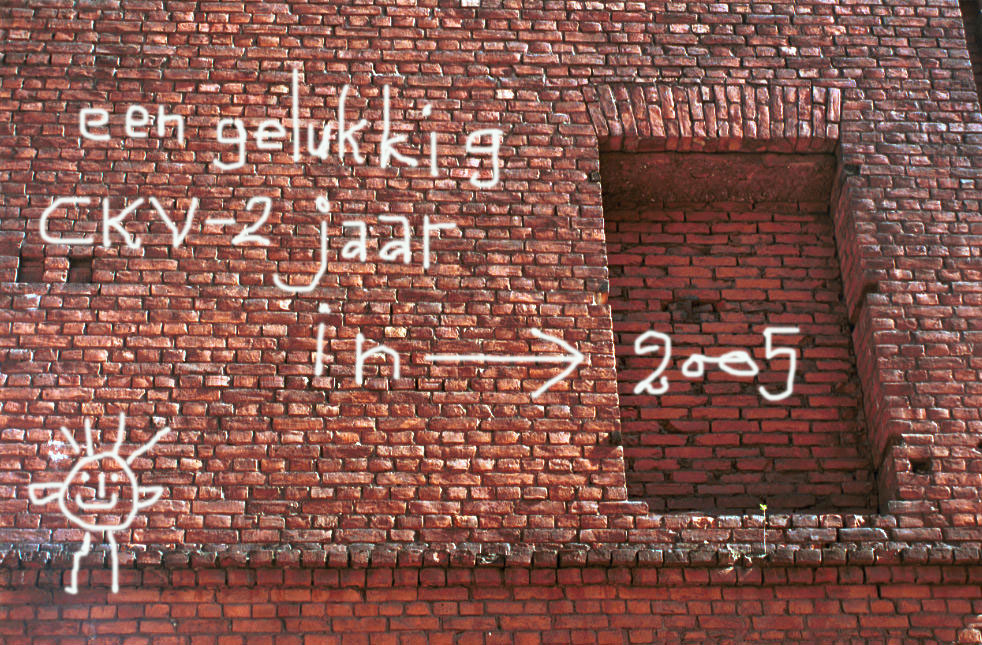 een gelukkig
CKV-2 jaar
in → 2005